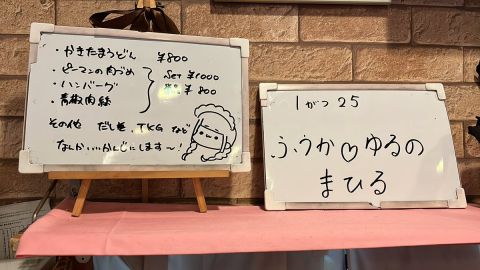 ・かきたまうどん ¥800
・ピーマンの肉づめ
・ハンバーグ
・青椒肉絲
Set ¥1000
¥800
その他 だし巻、TKG など
なんかいいかんじにします〜!
1がつ25
ふうか♡ゆるの
まひる